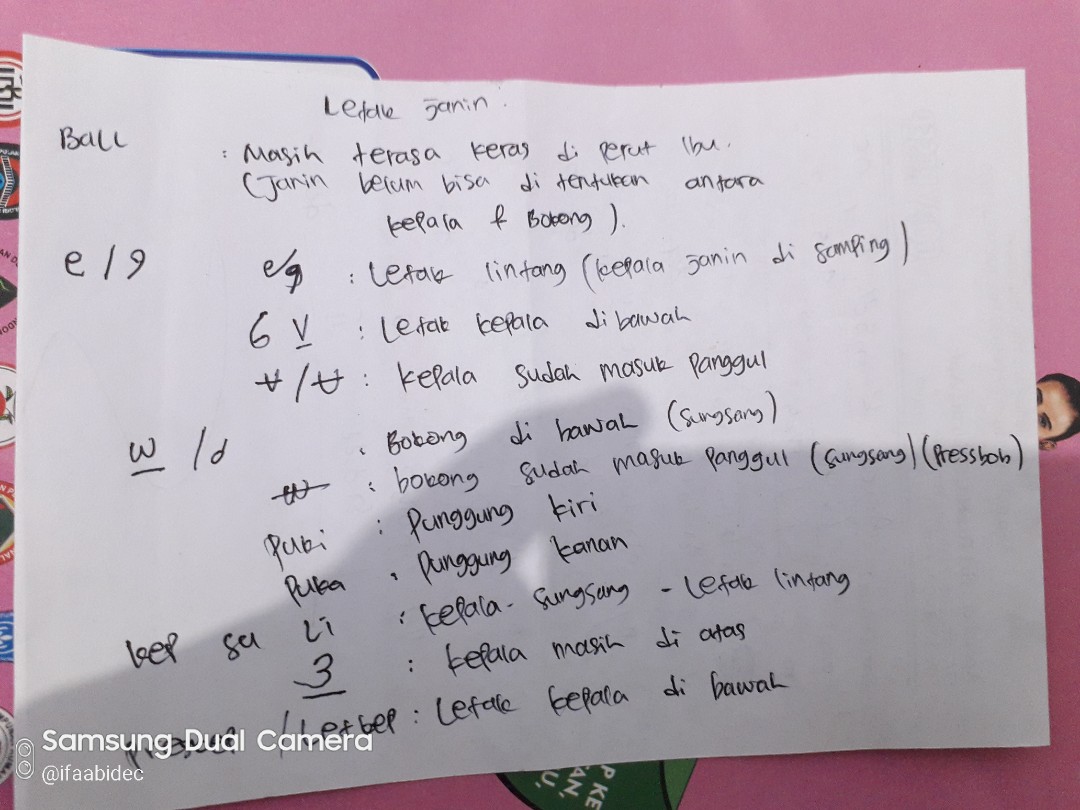 Letak Janin.
Ball : Masih terasa keras di perut Ibu.
(Janin belum bisa di tentukan antara
kepala & Bokong).
e/9 e/9 : Letak lintang (kepala janin di samping)
6 V : Letak kepala dibawah
V/V : kepala sudah masuk panggul
w/d : Bokong di bawah (sungsang)
w : bokong sudah masuk panggul (sungsang) (Pressbob)
Puki : Punggung kiri
Puka : Punggung kanan
kep su Li : kepala - sungsang - Letak lintang
3 : kepala masih di atas
/Letkep : Letak kepala di bawah
Samsung Dual Camera
@ifaabidec
AP KE
AN,
U,